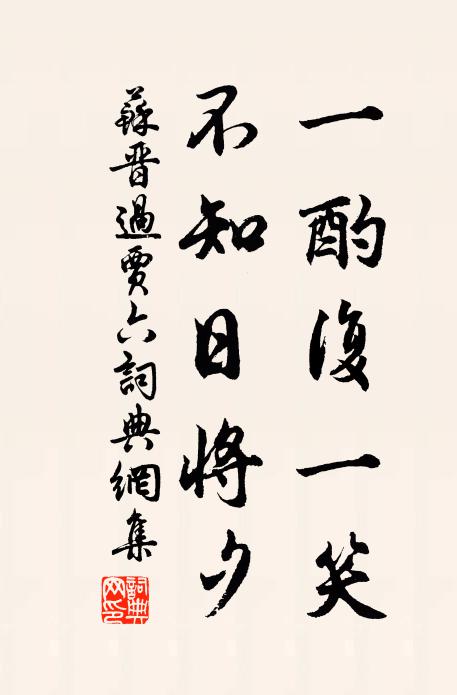 一酌復一笑
不知日將夕
蘇晋過賈六詞典網集
詞典网印